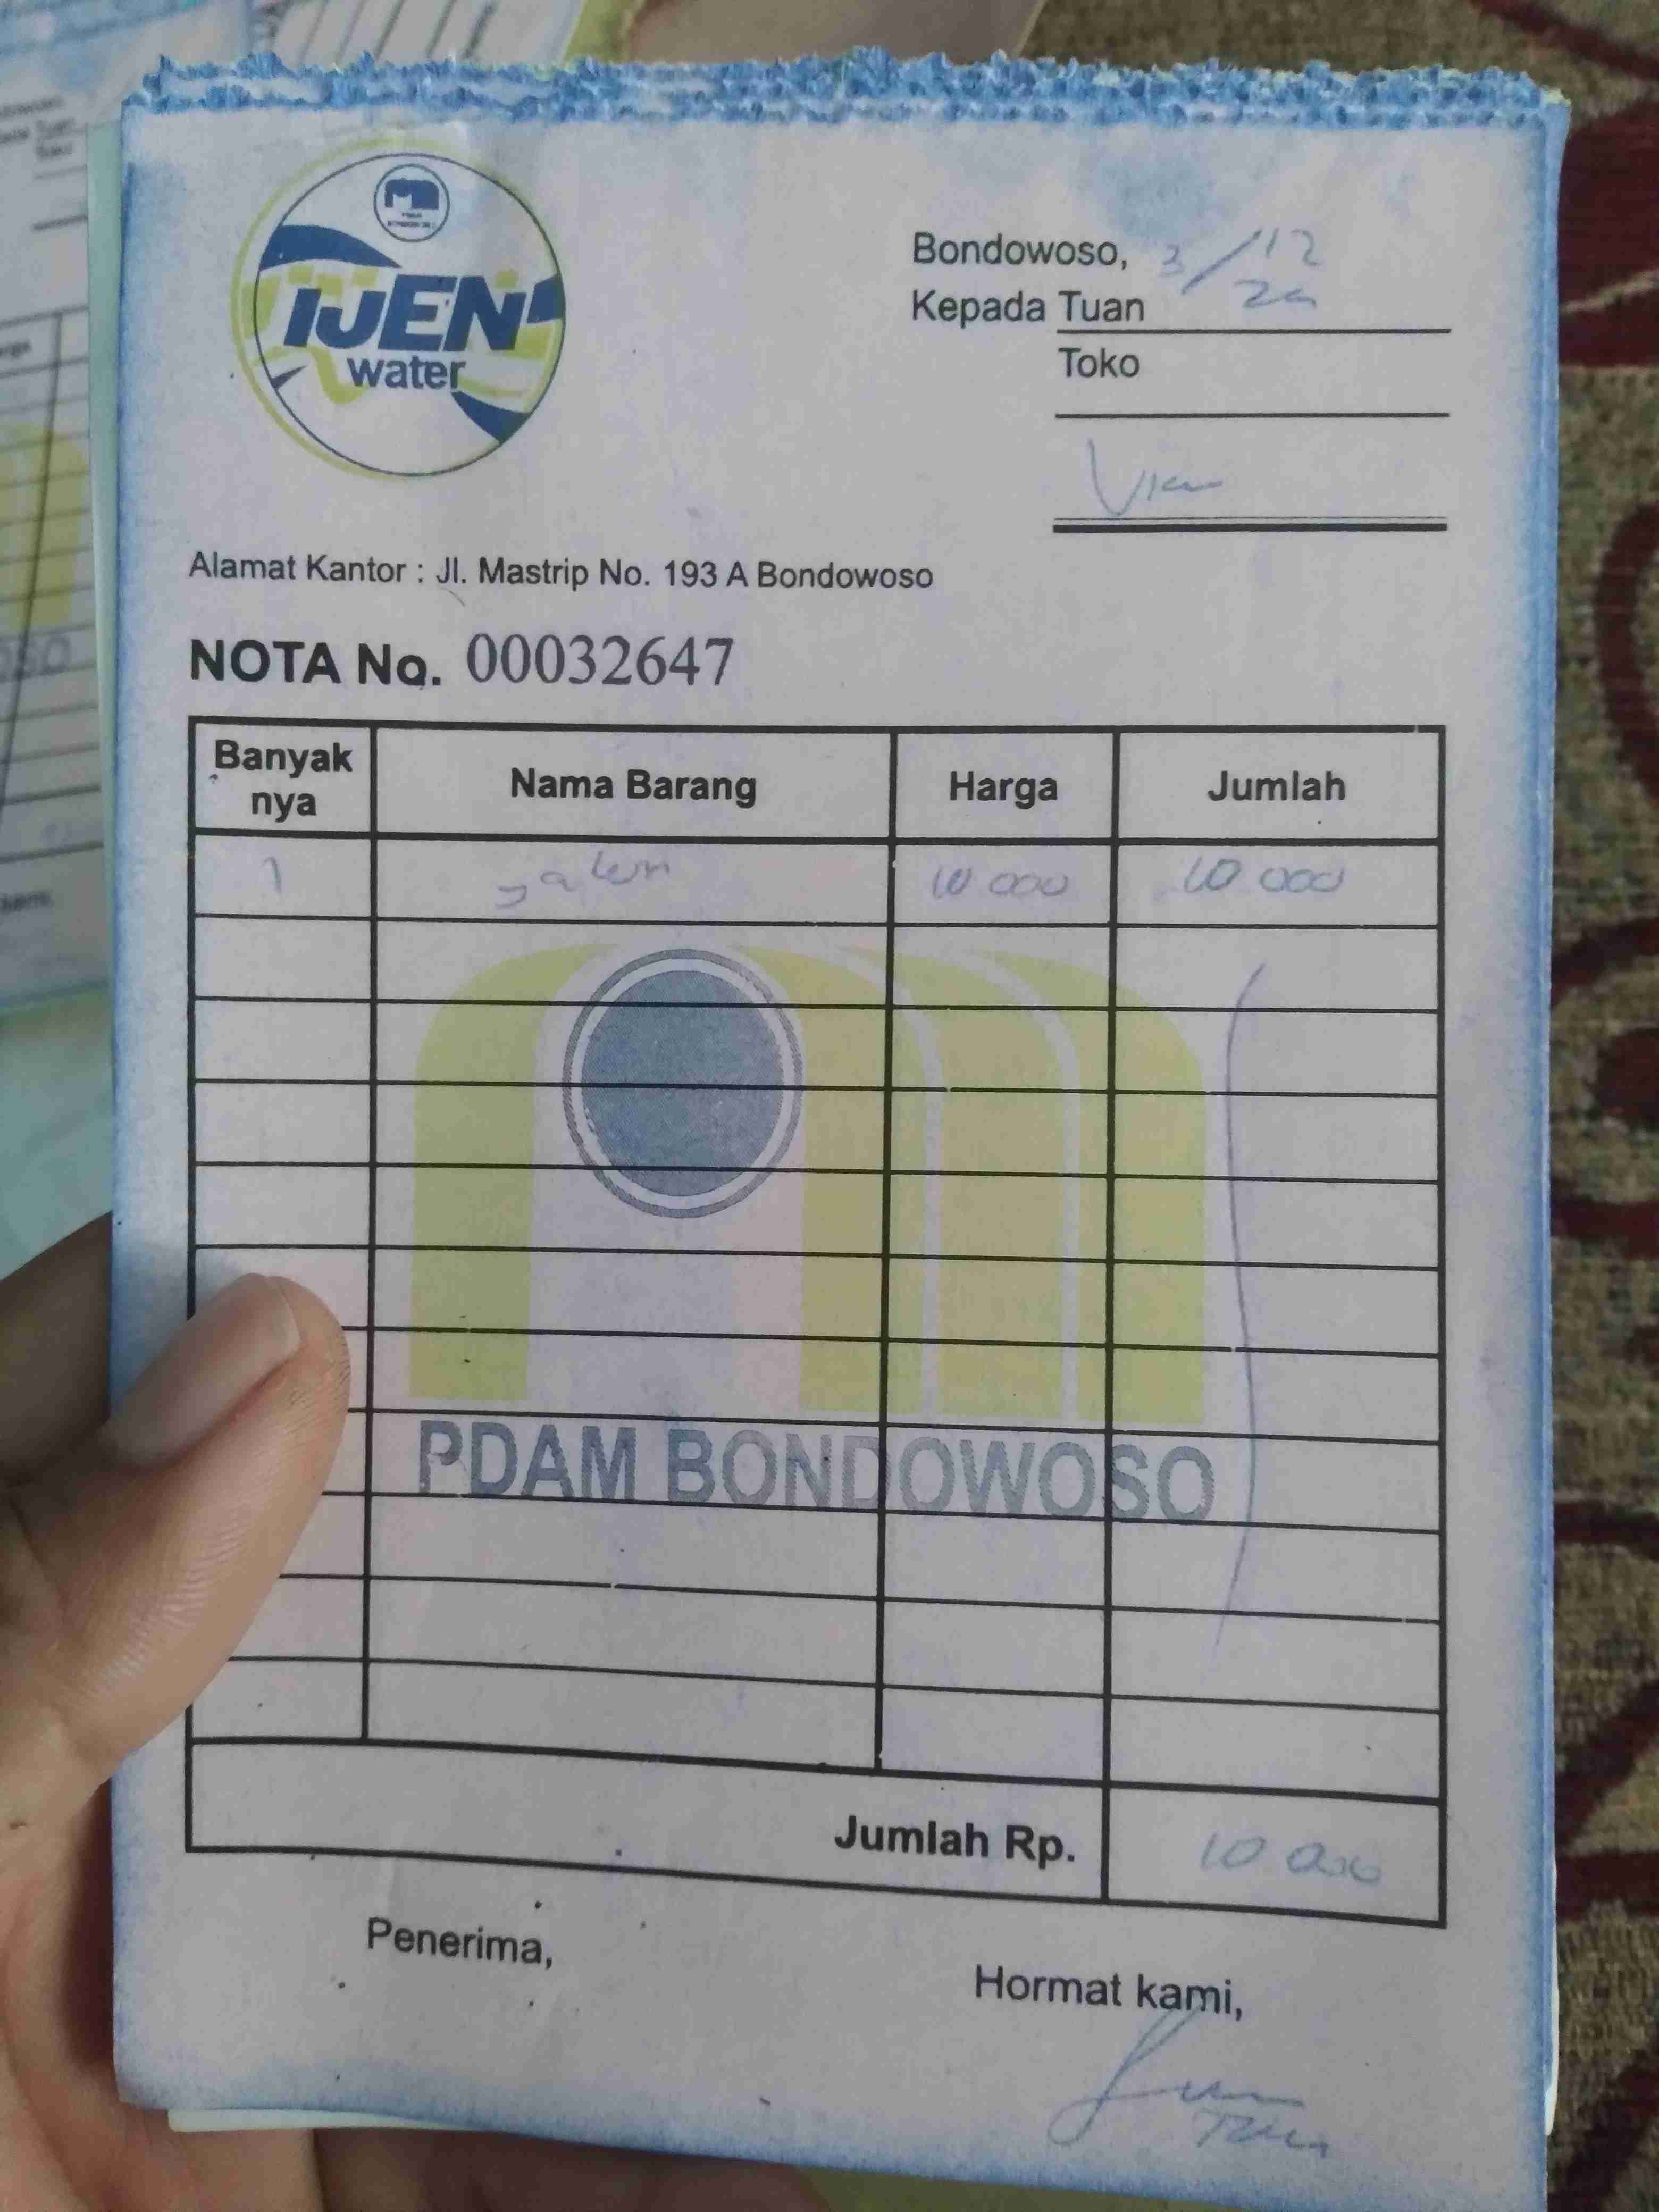 IJEN
water
Bondowoso, 3/12
Kepada Tuan
Toko
Alamat Kantor : Jl. Mastrip No. 193 A Bondowoso
NOTA No. 00032647
Banyak nya Nama Barang Harga Jumlah
1 galon 10 000 10 000
PDAM BONDOWOSO
Jumlah Rp. 10 000
Penerima,
Hormat kami,